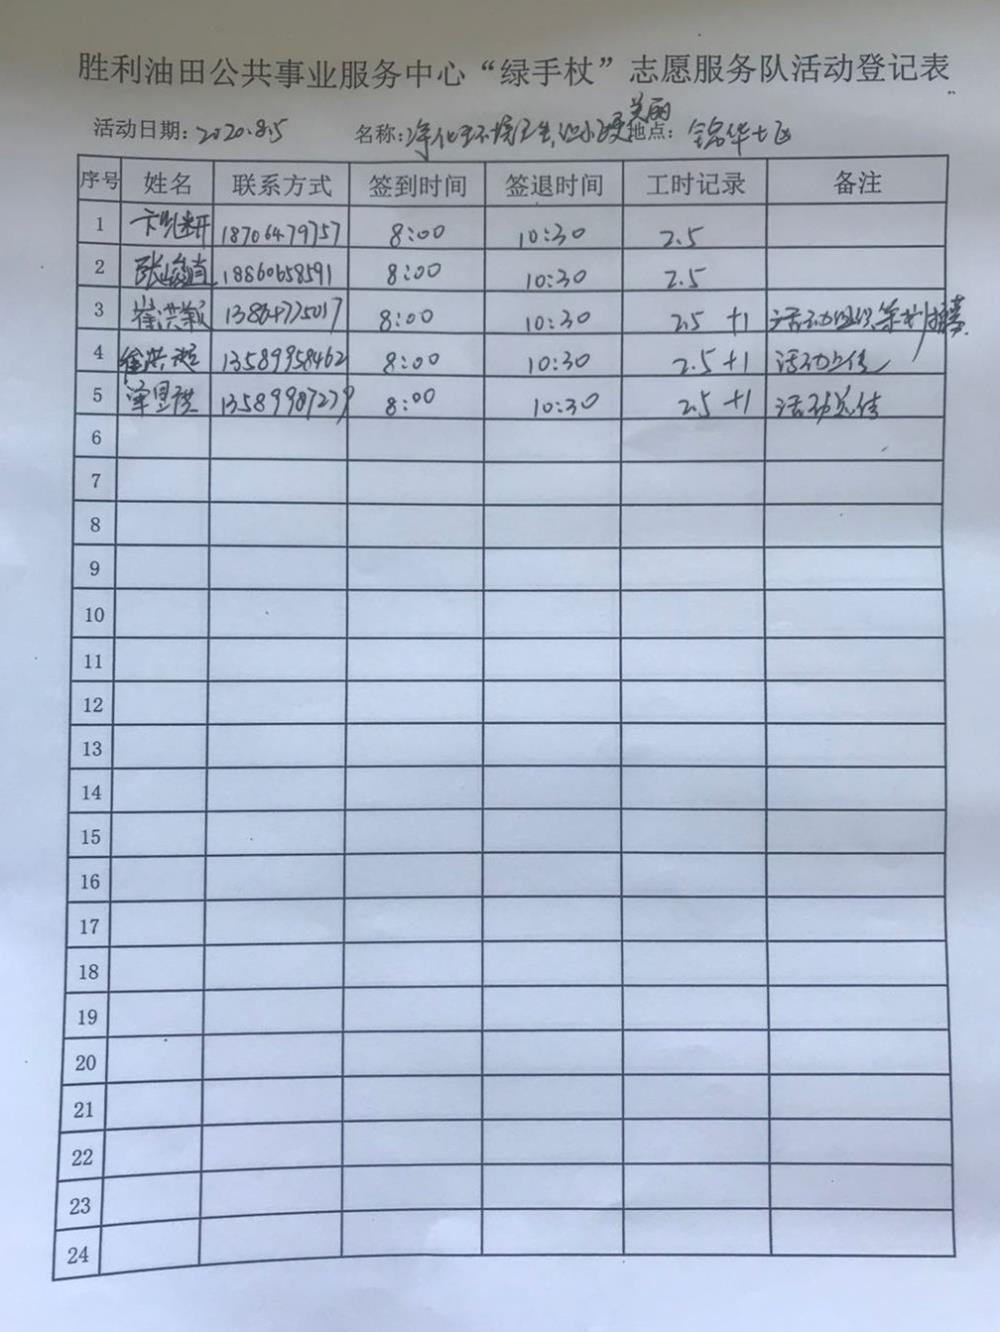 胜利油田公共事业服务中心“绿手杖”志愿服务队活动登记表
活动日期：2020.8.5 名称：净化环境卫生，让小区更美丽 地点：锦华七区
序号 姓名 联系方式 签到时间 签退时间 工时记录 备注
1 18706479757 8:00 10:30 2.5
2 18860658591 8:00 10:30 2.5
3 崔洪 13864775017 8:00 10:30 2.5 +1 活动组织、策划
4 徐洪 13589958462 8:00 10:30 2.5 +1 活动上传
5 13589987279 8:00 10:30 2.5 +1 活动宣传
6
7
8
9
10
11
12
13
14
15
16
17
18
19
20
21
22
23
24